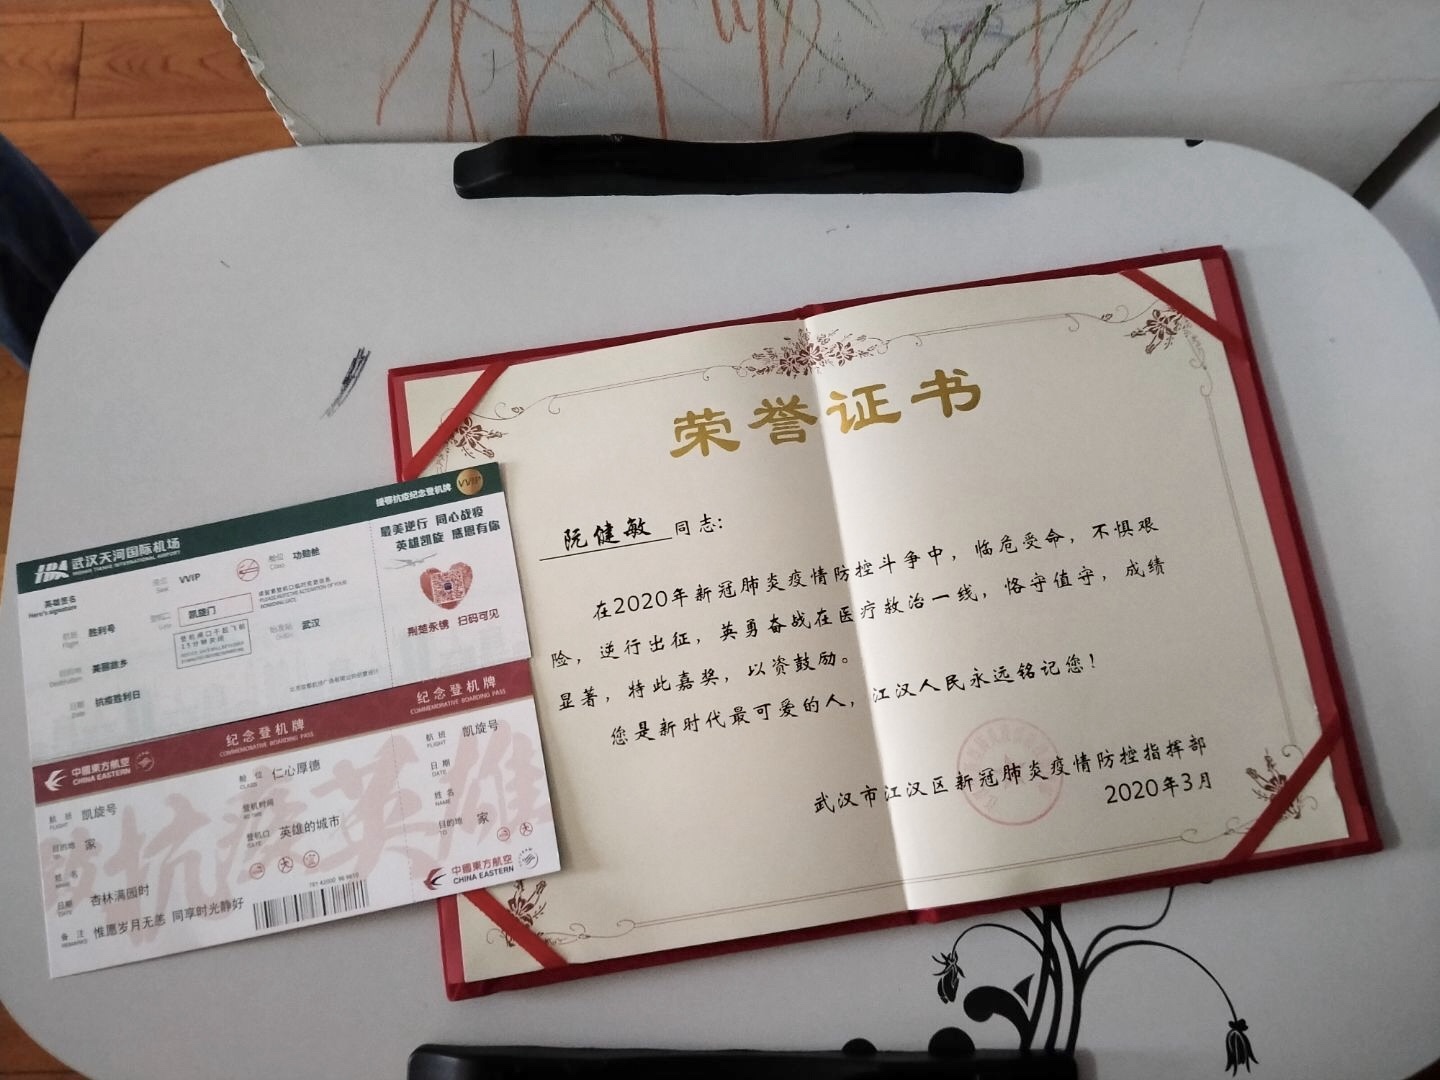 荣誉证书
阮健敏 同志：
在2020年新冠肺炎疫情防控斗争中，临危受命，不惧艰
险，逆行出征，英勇奋战在医疗救治一线，恪守值守，成绩
显著，特此嘉奖，以资鼓励。
您是新时代最可爱的人，江汉人民永远铭记您！
武汉市江汉区新冠肺炎疫情防控指挥部
2020年3月
援鄂抗疫纪念登机牌 VVIP
武汉天河国际机场
WUHAN TIANHE INTERNATIONAL AIRPORT
英雄签名
Hero's signature
座位 VVIP
Seat
舱位 功勋舱
Class
航班 胜利号
Flight
登机口 凯旋门
Gate
登机闸口于起飞前
15分钟关闭
请留意登机口临时变更信息
始发站 武汉
目的地 美丽故乡
Destination
日期 抗疫胜利日
Date
最美逆行 同心战疫
英雄凯旋 感恩有你
荆楚永镌 扫码可见
纪念登机牌
COMMEMORATIVE BOARDING PASS
纪念登机牌
COMMEMORATIVE BOARDING PASS
中國東方航空
CHINA EASTERN
航班 凯旋号
FLIGHT
舱位 仁心厚德
CLASS
目的地 家
TO
登机时间
登机口 英雄的城市
GATE
姓名
NAME
日期 杏林满园时
DATE
备注 惟愿岁月无恙 同享时光静好
REMARKS
抗疫英雄
781 42000 96 9610
航班 凯旋号
FLIGHT
日期
DATE
姓名
NAME
目的地 家
TO
中國東方航空
CHINA EASTERN